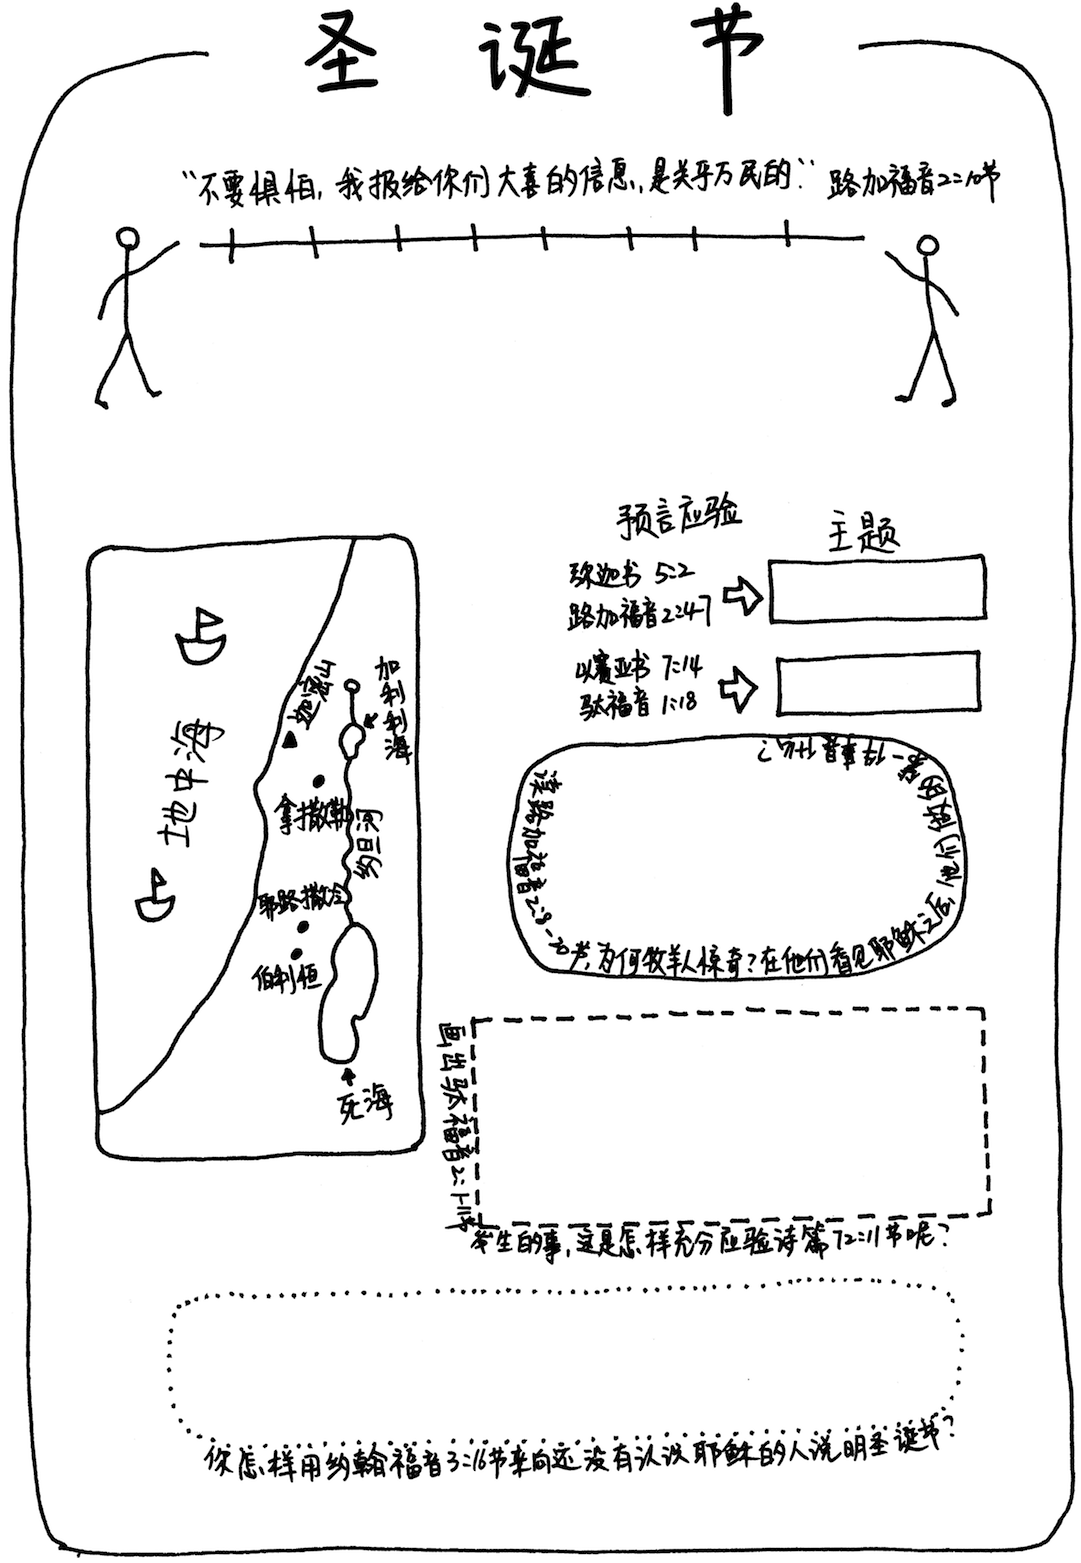 圣诞节
“不要惧怕，我报给你们大喜的信息，是关乎万民的”路加福音2:10节
预言应验
主题
弥迦书 5:2
路加福音2:4-7
以赛亚书 7:14
马太福音 1:18
地中海
迦密山
加利利海
拿撒勒
约旦河
耶路撒冷
伯利恒
死海
读路加福音2:8-20节，为何牧羊人惊奇？在他们看见耶稣之后，他们做的第一件事是什么？
画出马太福音2:1-11节
发生的事，这是怎样充分应验诗篇72:11节呢？
你怎样用约翰福音3:16节来向还没有认识耶稣的人说明圣诞节？